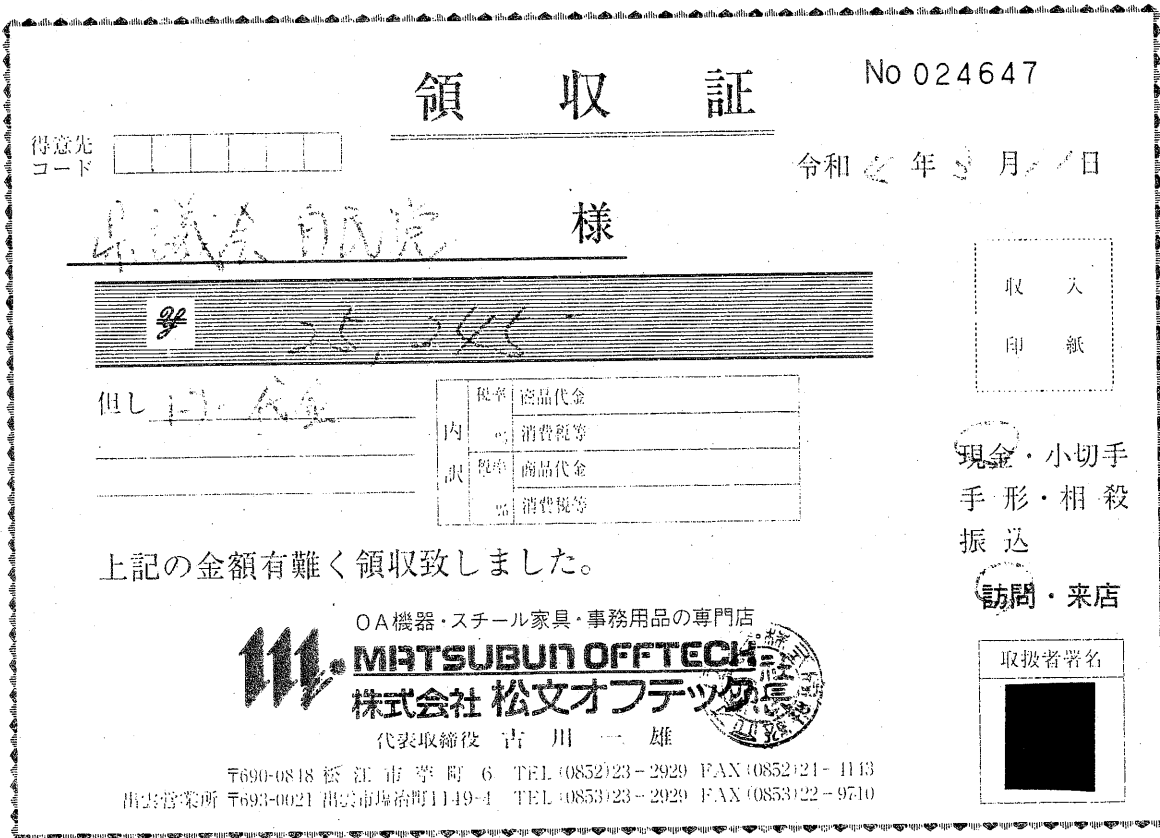 領収証
No 024647
得意先
コード
令和 年 月 日
県議会自民党 様
但し コピー代金
内訳
税率 商品代金
% 消費税等
税率 商品代金
% 消費税等
収入
印紙
現金・小切手
手形・相殺
振込
訪問・来店
上記の金額有難く領収致しました。
OA機器・スチール家具・事務用品の専門店
MATSUBUN OFFTECH
株式会社 松文オフテック
代表取締役 古川一雄
〒690-0848 松江市 町6 TEL (0852)23-2929 FAX (0852)21-4143
出雲営業所 〒693-0021 出雲市塩冶町1149-4 TEL (0853)23-2929 FAX (0853)22-9740
取扱者署名